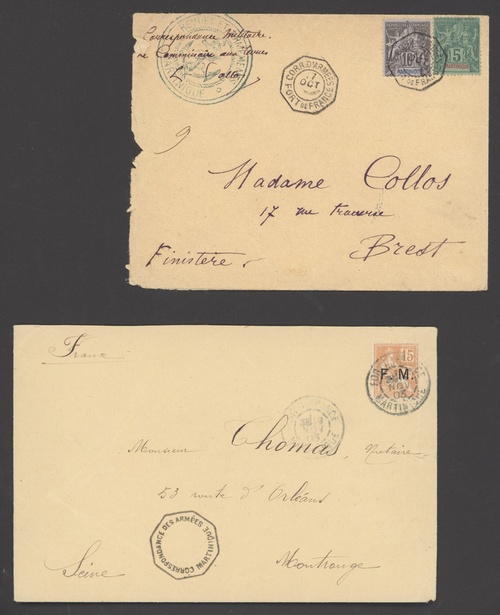 Correspondance Militaire
Le Commissaire aux Revues
MARTINIQUE
CORR. D'ARMÉES
7
OCT
FORT DE FRANCE
10
5
9
Madame Collos
17 rue Traverse
Brest
Finistère
France
15
F. M.
FORT DE FRANCE
NOV
03
MARTINIQUE
Monsieur Thomas, Notaire
53 route d'Orléans
Montrouge
Seine
CORRESPONDANCE DES ARMÉES
MARTINIQUE